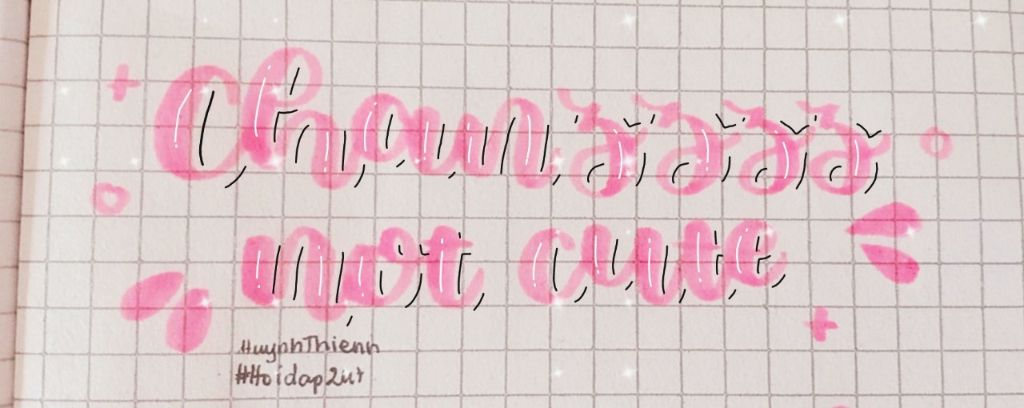 Chaunzzzz
not cute
HuynhThienn
#Hoidap247